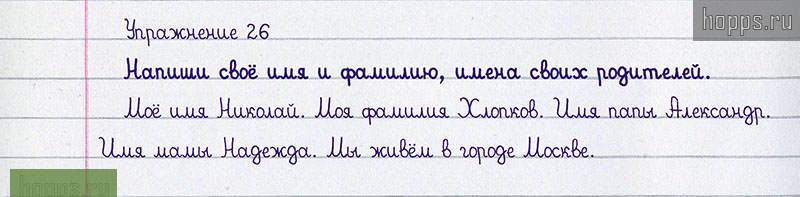 hopps.ru
Упражнение 26
Напиши своё имя и фамилию, имена своих родителей.
Моё имя Николай. Моя фамилия Хлопков. Имя папы Александр.
Имя мамы Надежда. Мы живём в городе Москве.
hopps.ru